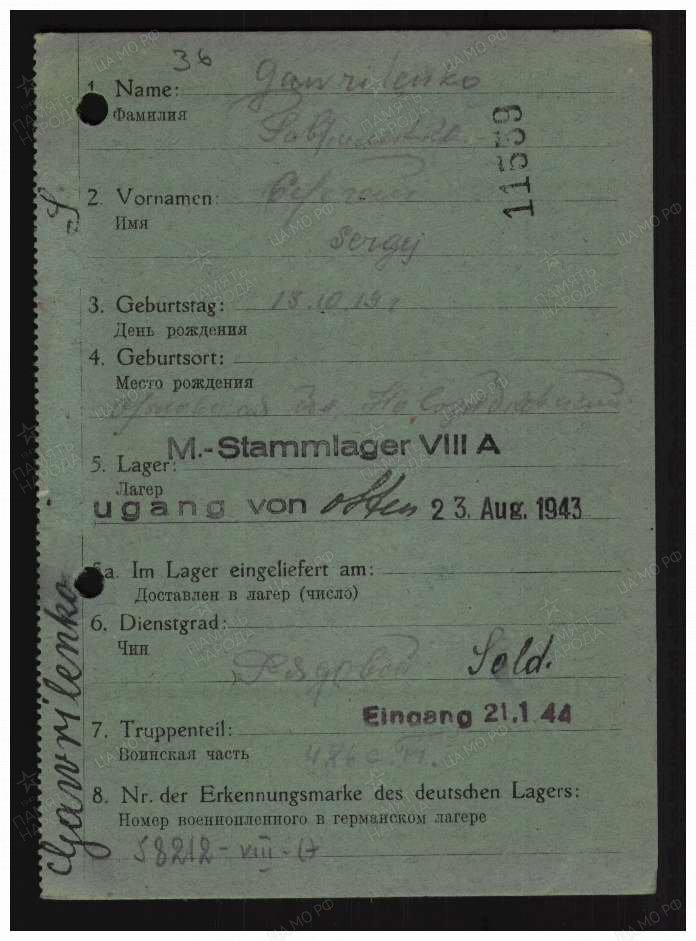 36
1. Name: Gawrilenko
Фамилия
Гавриленко
11539
2. Vornamen: Сергей
Имя
Sergej
S.
3. Geburtstag: 13.10.19 г
День рождения
4. Geburtsort:
Место рождения
M.-Stammlager VIII A
5. Lager:
Лагер
ugang von Osten 23. Aug. 1943
5a. Im Lager eingeliefert am:
Доставлен в лагер (число)
6. Dienstgrad:
Чин
Рядовой Sold.
Eingang 21.1.44
7. Truppenteil:
Воинская часть 486 с.п.
8. Nr. der Erkennungsmarke des deutschen Lagers:
Номер военнопленного в германском лагере
58212 - VIII - A
Gawrilenko
ПАМЯТЬ НАРОДА
ЦА МО РФ